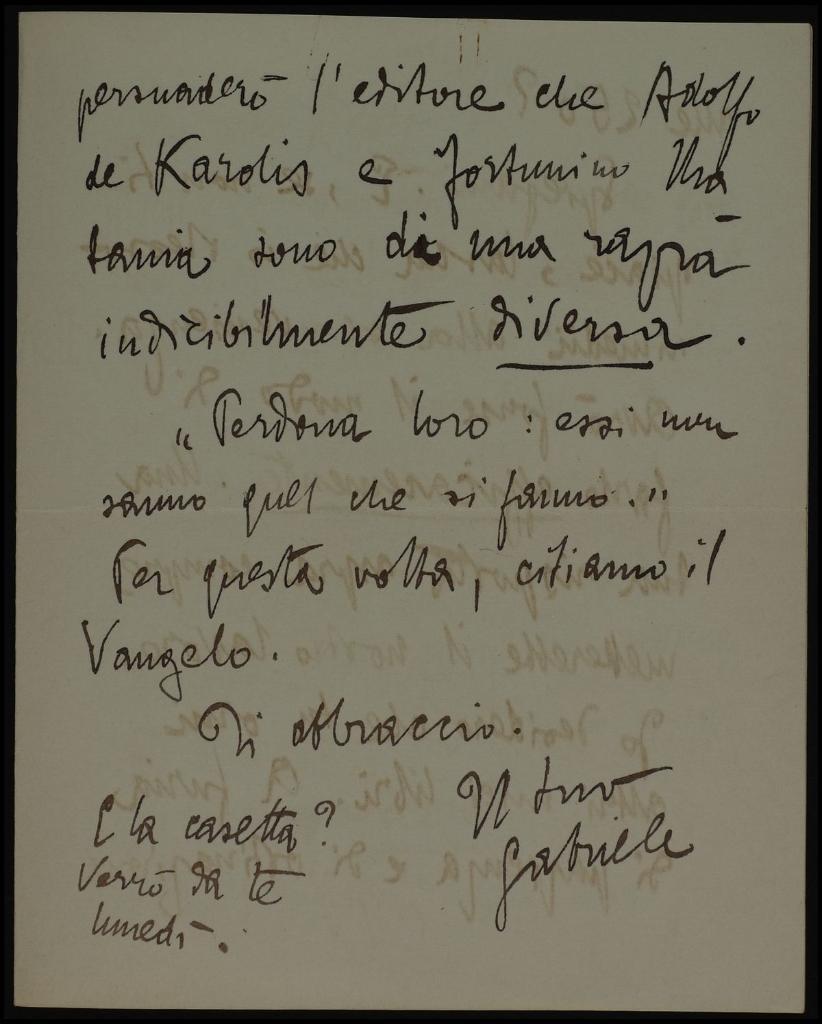 persuaderò l'editore che Adolfo
de Karolis e Fortunino Ma
tania sono di una razza
indicibilmente diversa.
"Perdona loro: essi non
sanno quel che si fanno."
Per questa volta, citiamo il
Vangelo.
Ti abbraccio.
Il tuo
Gabriele
E la casetta?
Verrò da te
lunedì.